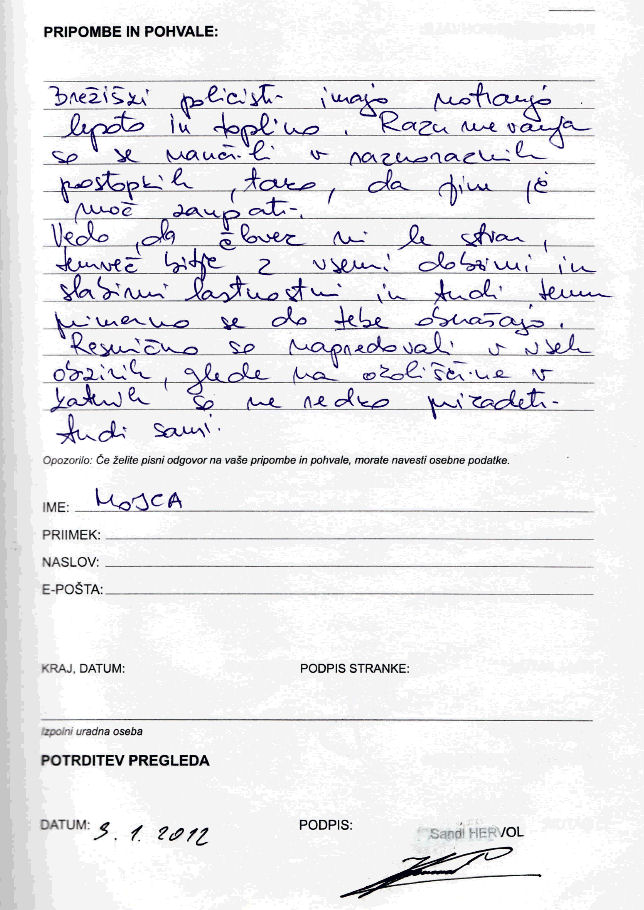 PRIPOMBE IN POHVALE:
Brežiški policisti imajo notranjo
lepoto in toplino. Razumevanja
so se naučili v raznoraznih
postopkih, tako, da jim je
moč zaupati.
Vedo, da človek ni le stvar,
temveč bitje z vsemi dobrimi in
slabimi lastnostmi in tudi temu
primerno se do tebe obnašajo.
Resnično so napredovali v vseh
ozirih, glede na okoliščine v
katerih so ne redko prizadeti
tudi sami.
Opozorilo: Če želite pisni odgovor na vaše pripombe in pohvale, morate navesti osebne podatke.
IME: MOJCA
PRIIMEK:
NASLOV:
E-POŠTA:
KRAJ, DATUM: PODPIS STRANKE:
Izpolni uradna oseba
POTRDITEV PREGLEDA
DATUM: 3. 1. 2012 PODPIS: Sandi HERVOL